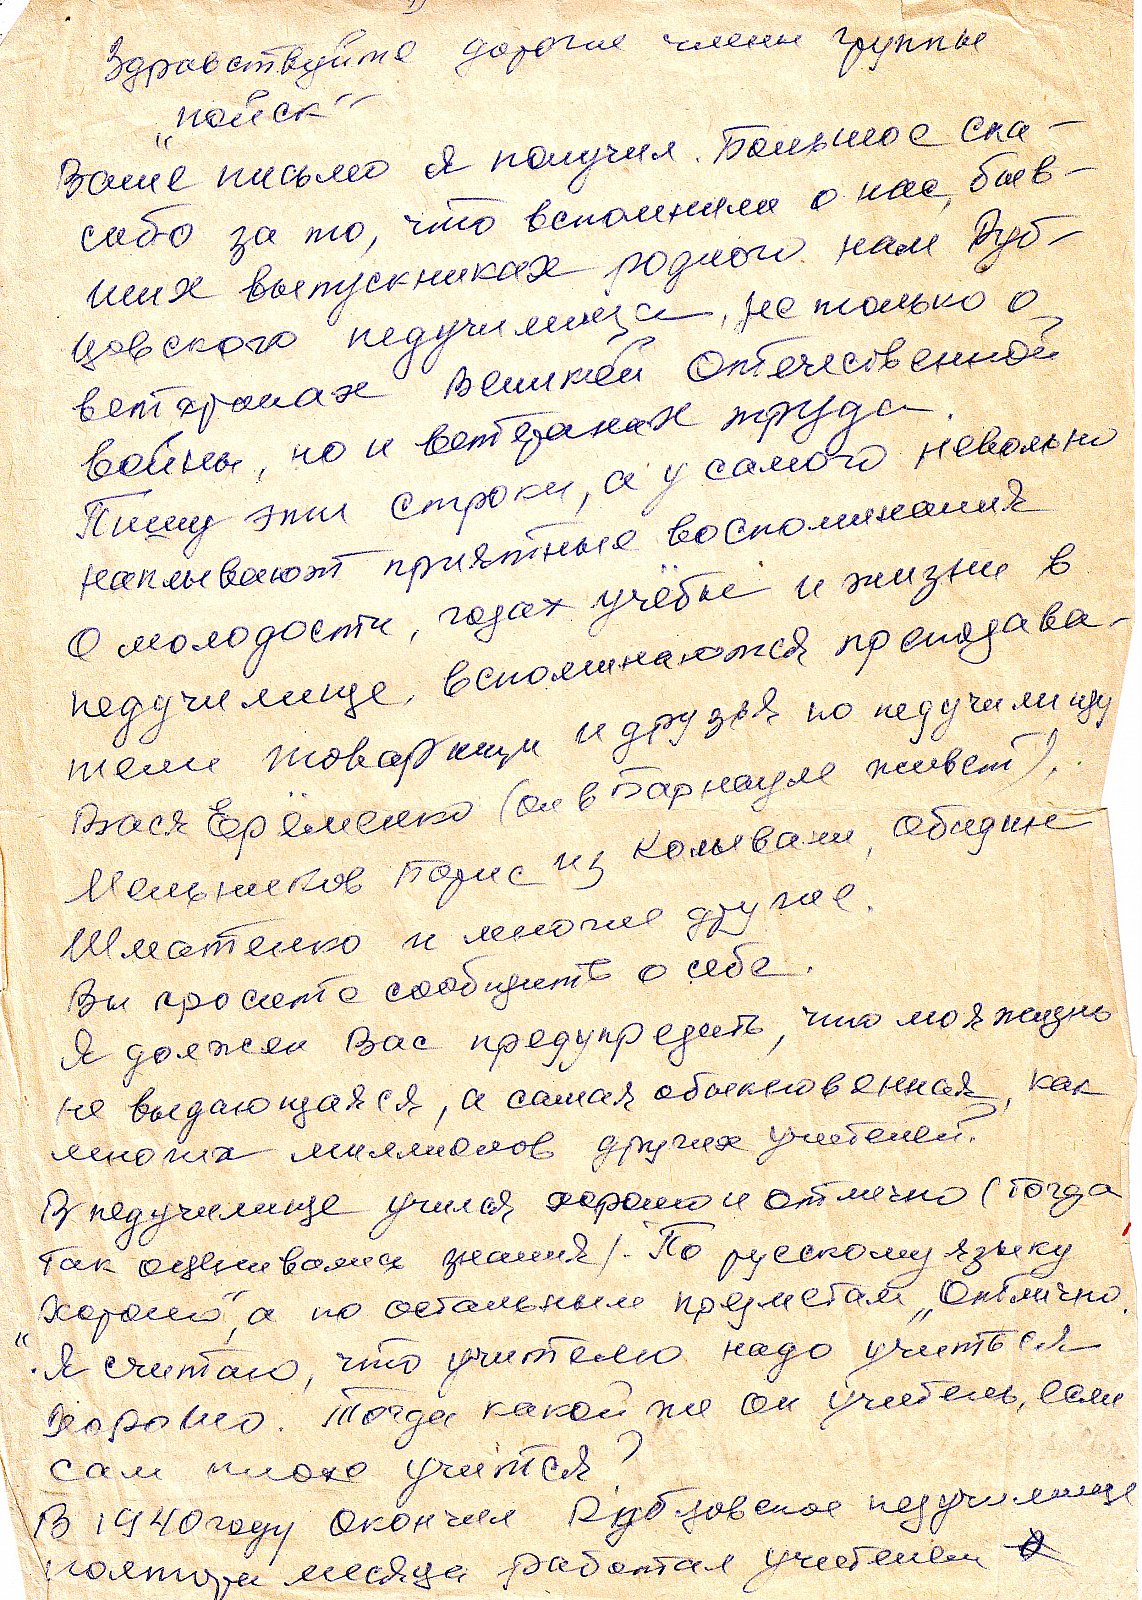 Здравствуйте дорогие члены группы
„поиск“
Ваше письмо я получил. Большое спа-
сибо за то, что вспомнили о нас, быв-
ших выпускниках родного нам Руб-
цовского педучилища, не только о
ветеранах Великой Отечественной
войны, но и ветеранах труда.
Пишу эти строки, а у самого невольно
наплывают приятные воспоминания
о молодости, годах учёбы и жизни в
педучилище, вспоминаются препадава-
тели товарищи и друзья по педучилищу
Вася Ерёменко (он в Барнауле живет),
Мельников Борис из Колывани,
Шматенко и многие другие.
Вы просите сообщить о себе.
Я должен Вас предупредить, что моя жизнь
не выдающаяся, а самая обыкновенная, как
многих миллионов других учителей.
В педучилище учился хорошо и отлично (тогда
так оценивались знания). По русскому языку
хорошо“, а по остальным предметам „Отлично.
“. Я считаю, что учителю надо учиться
хорошо. Тогда какой же он учитель, если
сам плохо учится?
В 1940 году окончил Рубцовское педучилище
полтора месяца работал учителем